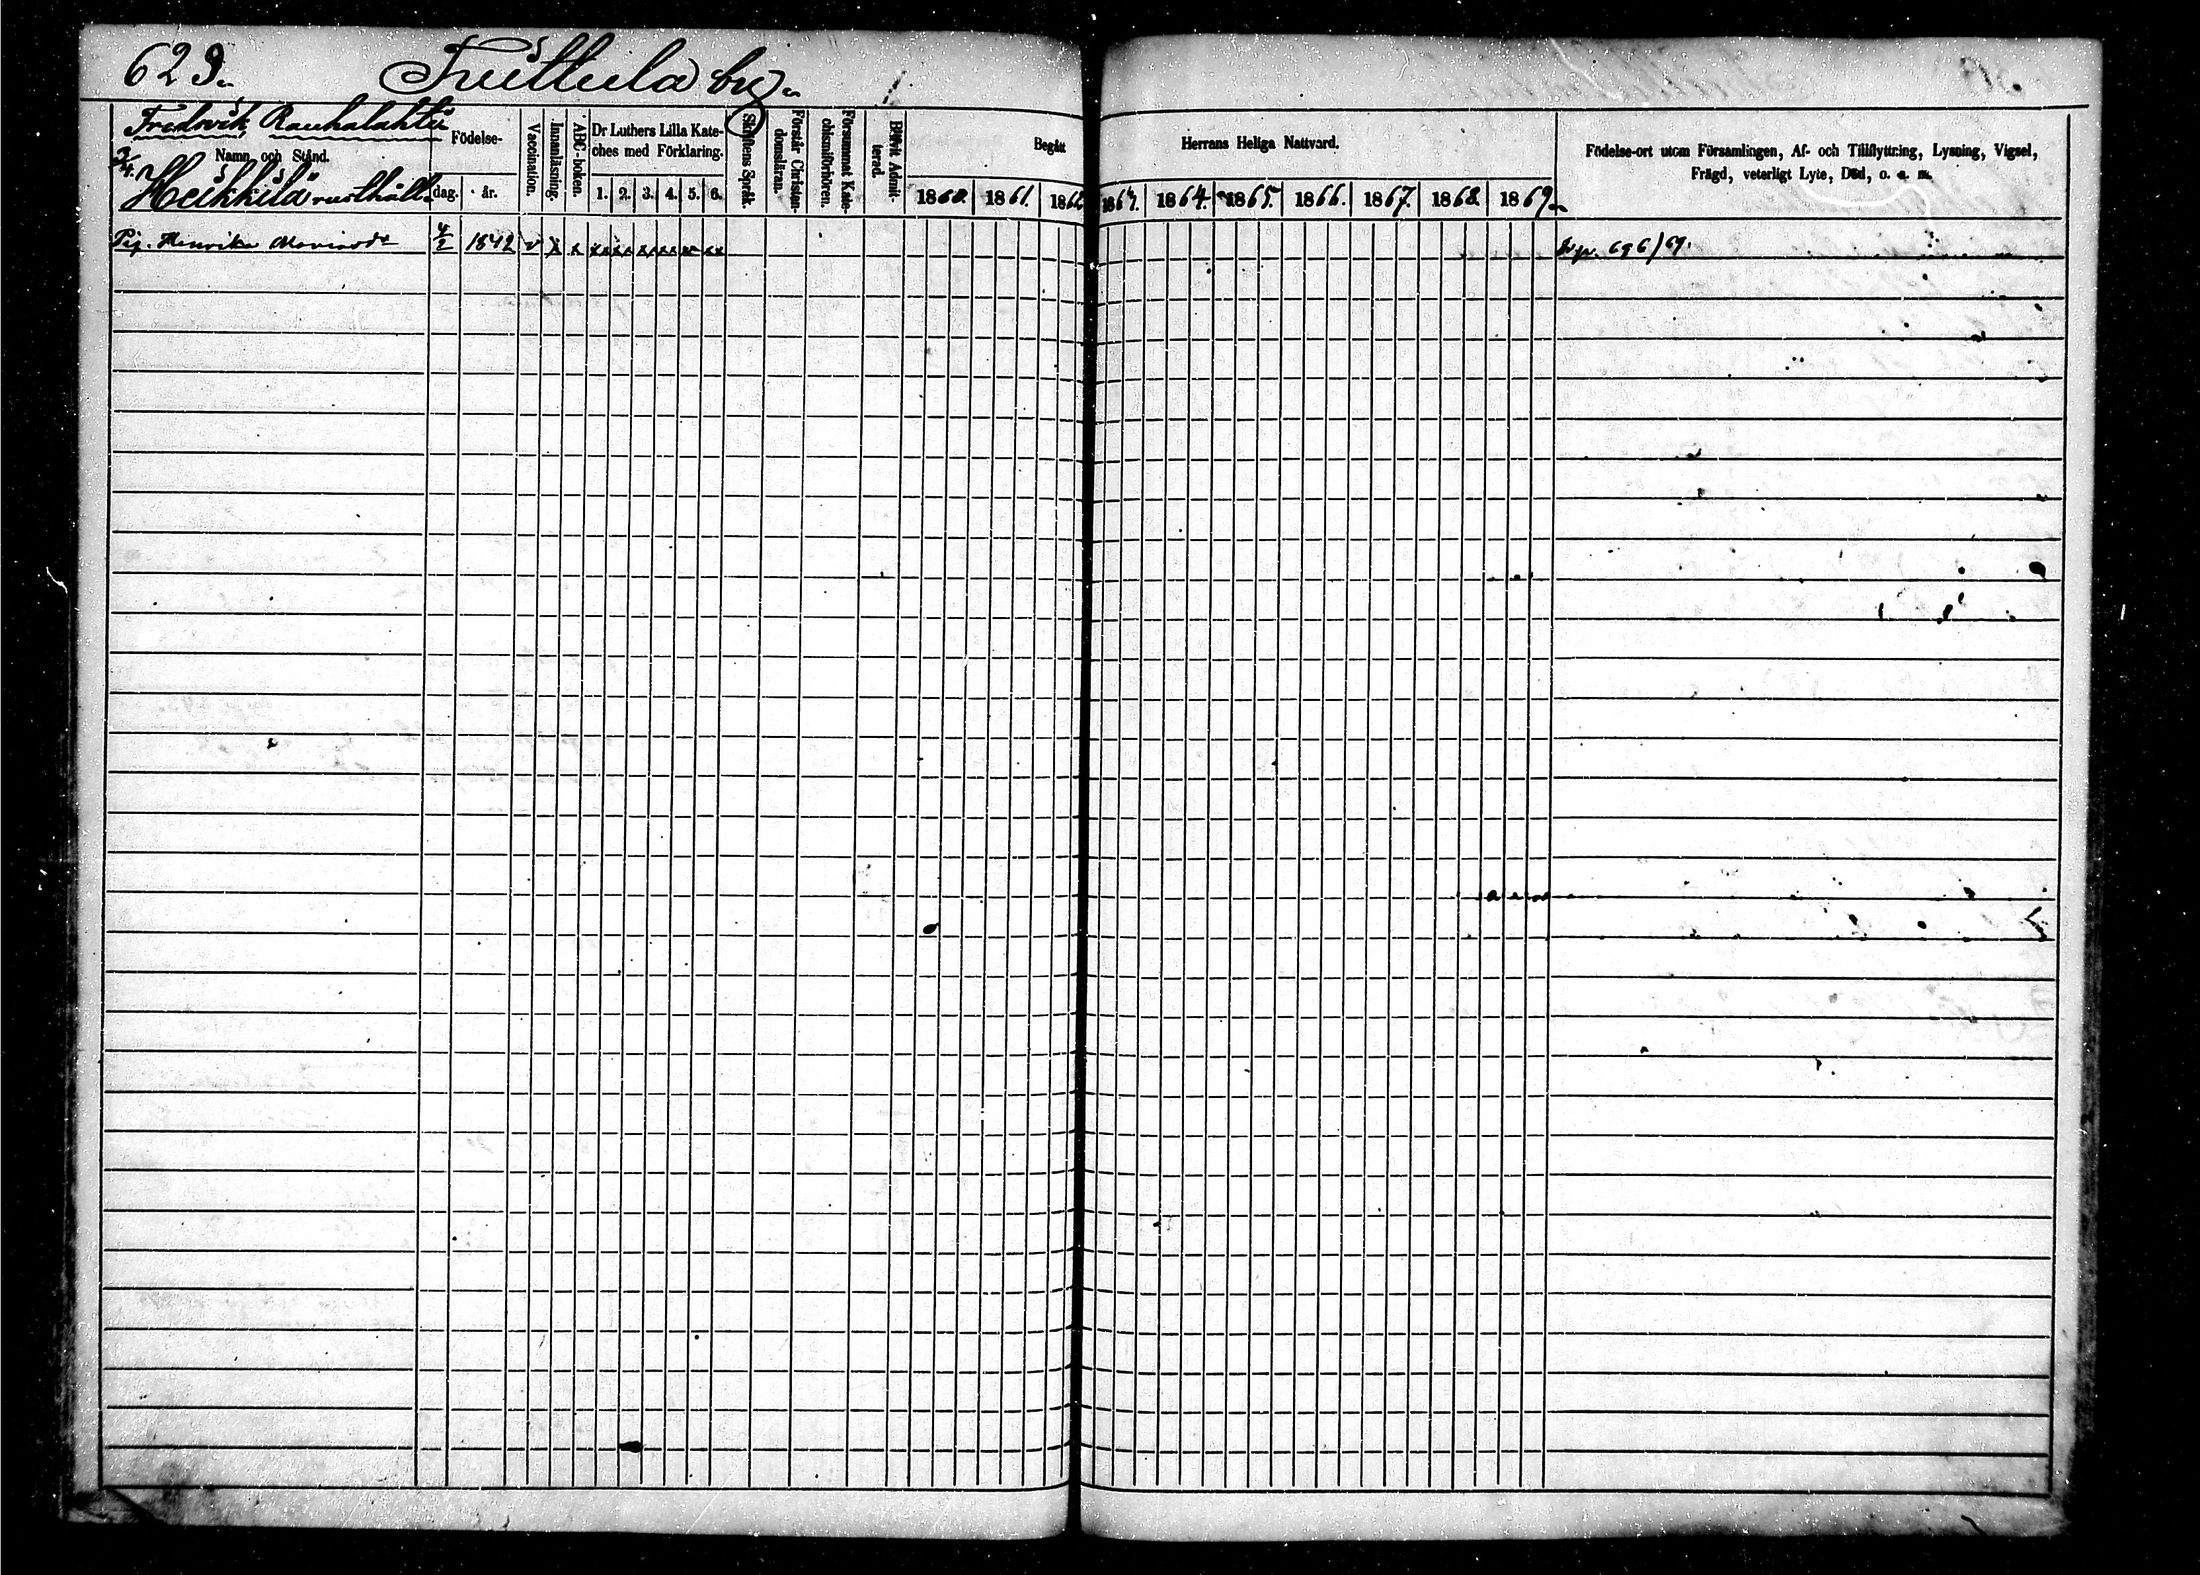 623.
by.
Fredrik Rauhalahti
3/4.
Namn och Stånd.
Heikkilä rusthåll.
Födelse-
dag.
år.
Vaccination.
Innanläsning.
ABC-boken.
Dr Luthers Lilla Kate-
ches med Förklaring.
1. 2. 3. 4. 5. 6.
Skriftens Språk.
Förstår Christen-
domsläran.
Försummat Kate-
chismiförhören.
Blifvit Admit-
terad.
Begått
1860. 1861. 1862
Herrans Heliga Nattvard.
1864. 1865. 1866. 1867. 1868. 1869.
Födelse-ort utom Församlingen, Af- och Tillflyttning, Lysning, Vigsel,
Frägd, veterligt Lyte, Död, o. s. m.
Pig. Henrika 4/2 1842 v x x
696/69.